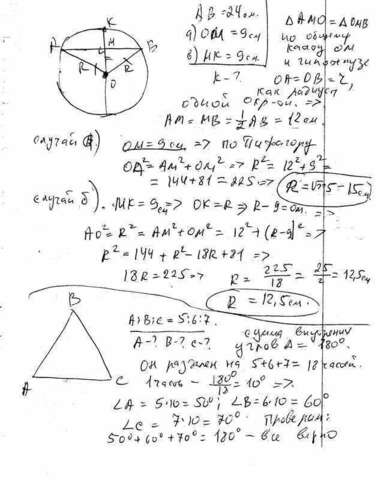 K
A
M
B
R
R
O
AB = 24 см.
а) OM = 9 см
в) MK = 9 см.
R - ?
Δ AMO = Δ OMB
по общему
катету ом
и гипотенузе
OA = OB = r,
как радиусы
одной окр-ти. =>
AM = MB = 1/2 AB = 12 см.
случай а). OM = 9 см => по Пифагору
OA² = AM² + OM² => R² = 12² + 9² =
= 144 + 81 = 225 => R = √225 - 15 см
случай б). MK = 9 см => OK = R => R - 9 = OM. =>
AO² = R² = AM² + OM² = 12² + (R - 9)² =>
R² = 144 + R² - 18R + 81 =>
18R = 225 => R = 225/18 = 25/2 = 12,5 см
R = 12,5 см.
B
A
C
A:B:C = 5:6:7.
A - ? B - ? C - ?
сумма внутренних
углов Δ = 180°.
Он разделен на 5 + 6 + 7 = 18 частей.
1 часть - 180°/18 = 10° =>
∠A = 5·10 = 50°; ∠B = 6·10 = 60°
∠C = 7·10 = 70° Проверим:
50° + 60° + 70° = 180° - все верно